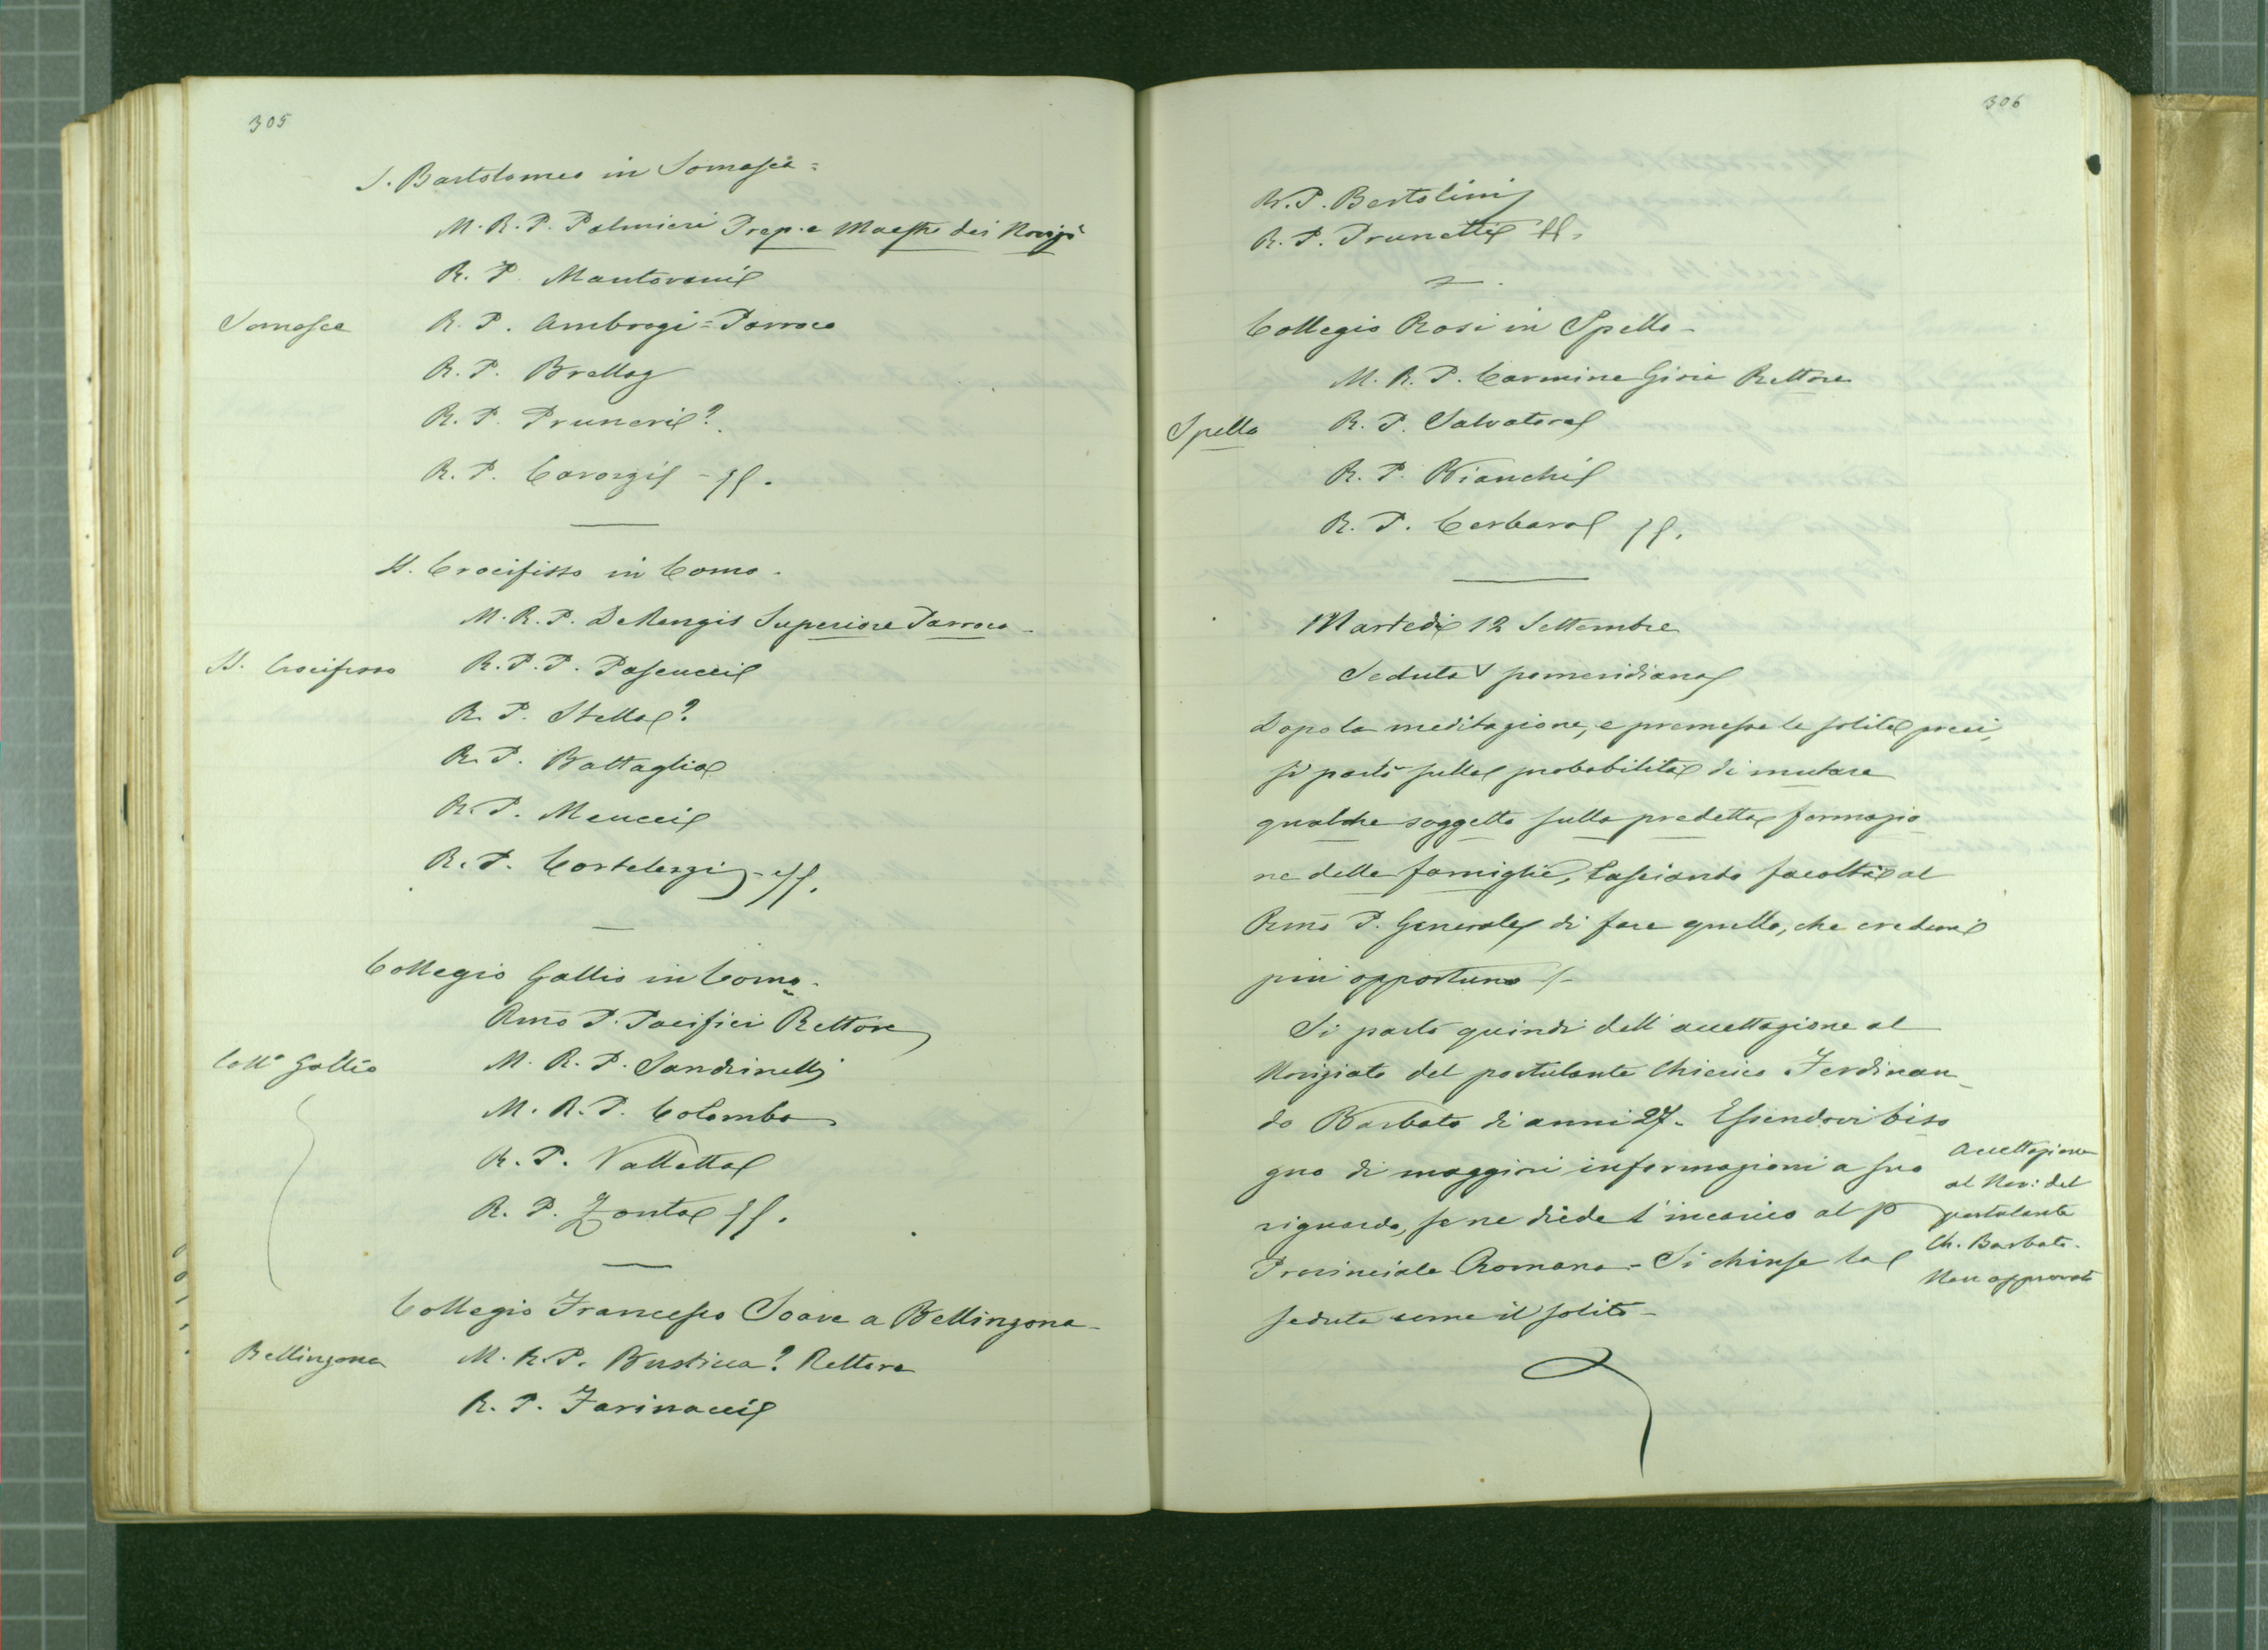 305
S. Bartolomeo in Somasca =
M. R. P. Palmieri Prep. e Maestro dei Novizi
R. P. Mantovani
Somasca
R. P. Ambrogi = Parroco
R. P. Brella
R. P. Pruneri?
R. P. Cavozzi - ff.
SS. Crocifisso in Como.
M. R. P. De Rengis Superiore Parroco -
SS. Crocifisso
R. P. P. Pascucci
R. P. Stella?
R. P. Battaglia
R. P. Meucci
R. P. Cortelezzi - ff.
Collegio Gallio in Como.
Rmo P. Pacifici Rettore
Collo Gallio
M. R. P. Sandrinelli
M. R. P. Colombo
R. P. Valletta
R. P. Zonta ff.
Collegio Francesco Soave a Bellinzona -
Bellinzona
M. R. P. Bustica? Rettore
R. P. Farinacci
306
R. P. Bertolini
R. P. Prunetti ff.
Collegio Rosi in Spello -
M. R. P. Carmine Gioia Rettore
Spello
R. P. Salvatore
R. P. Bianchi
R. P. Cerbara ff.
Martedì 12 Settembre
Seduta V pomeridiana
Dopo la meditazione, e premesse le solite preci,
si parlò sulla probabilità di mutare
qualche soggetto sulla predetta formazio
ne delle famiglie, lasciando facoltà al
Rmo P. Generale di fare quello, che crederà
più opportuno -
Si parlò quindi dell'accettazione al
Noviziato del postulante Chierico Ferdinan-
do Barbato di anni 27. Essendovi biso
gno di maggiori informazioni a suo
riguardo, se ne diede l'incarico al P
Provinciale Romano - Si chiuse la
seduta come il solito -
Accettazione
al Nov: del
postulante
Ch. Barbato.
Non approvato